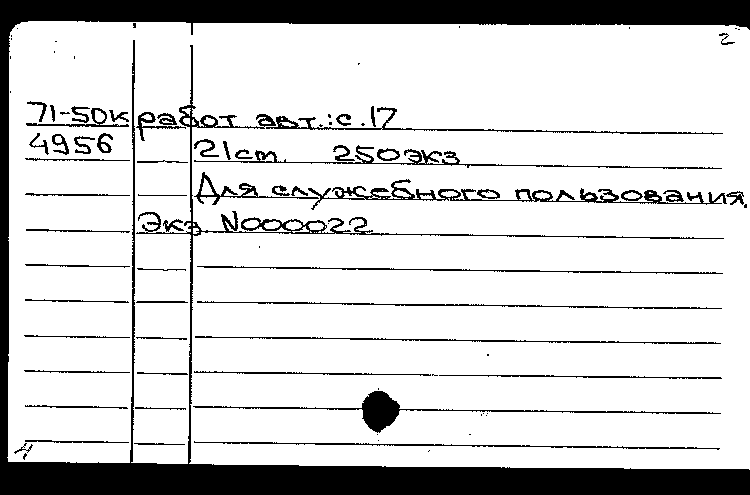 2
71-50к работ авт.: с. 17
4956 21cm. 250 экз.
Для служебного пользования.
Экз N000022